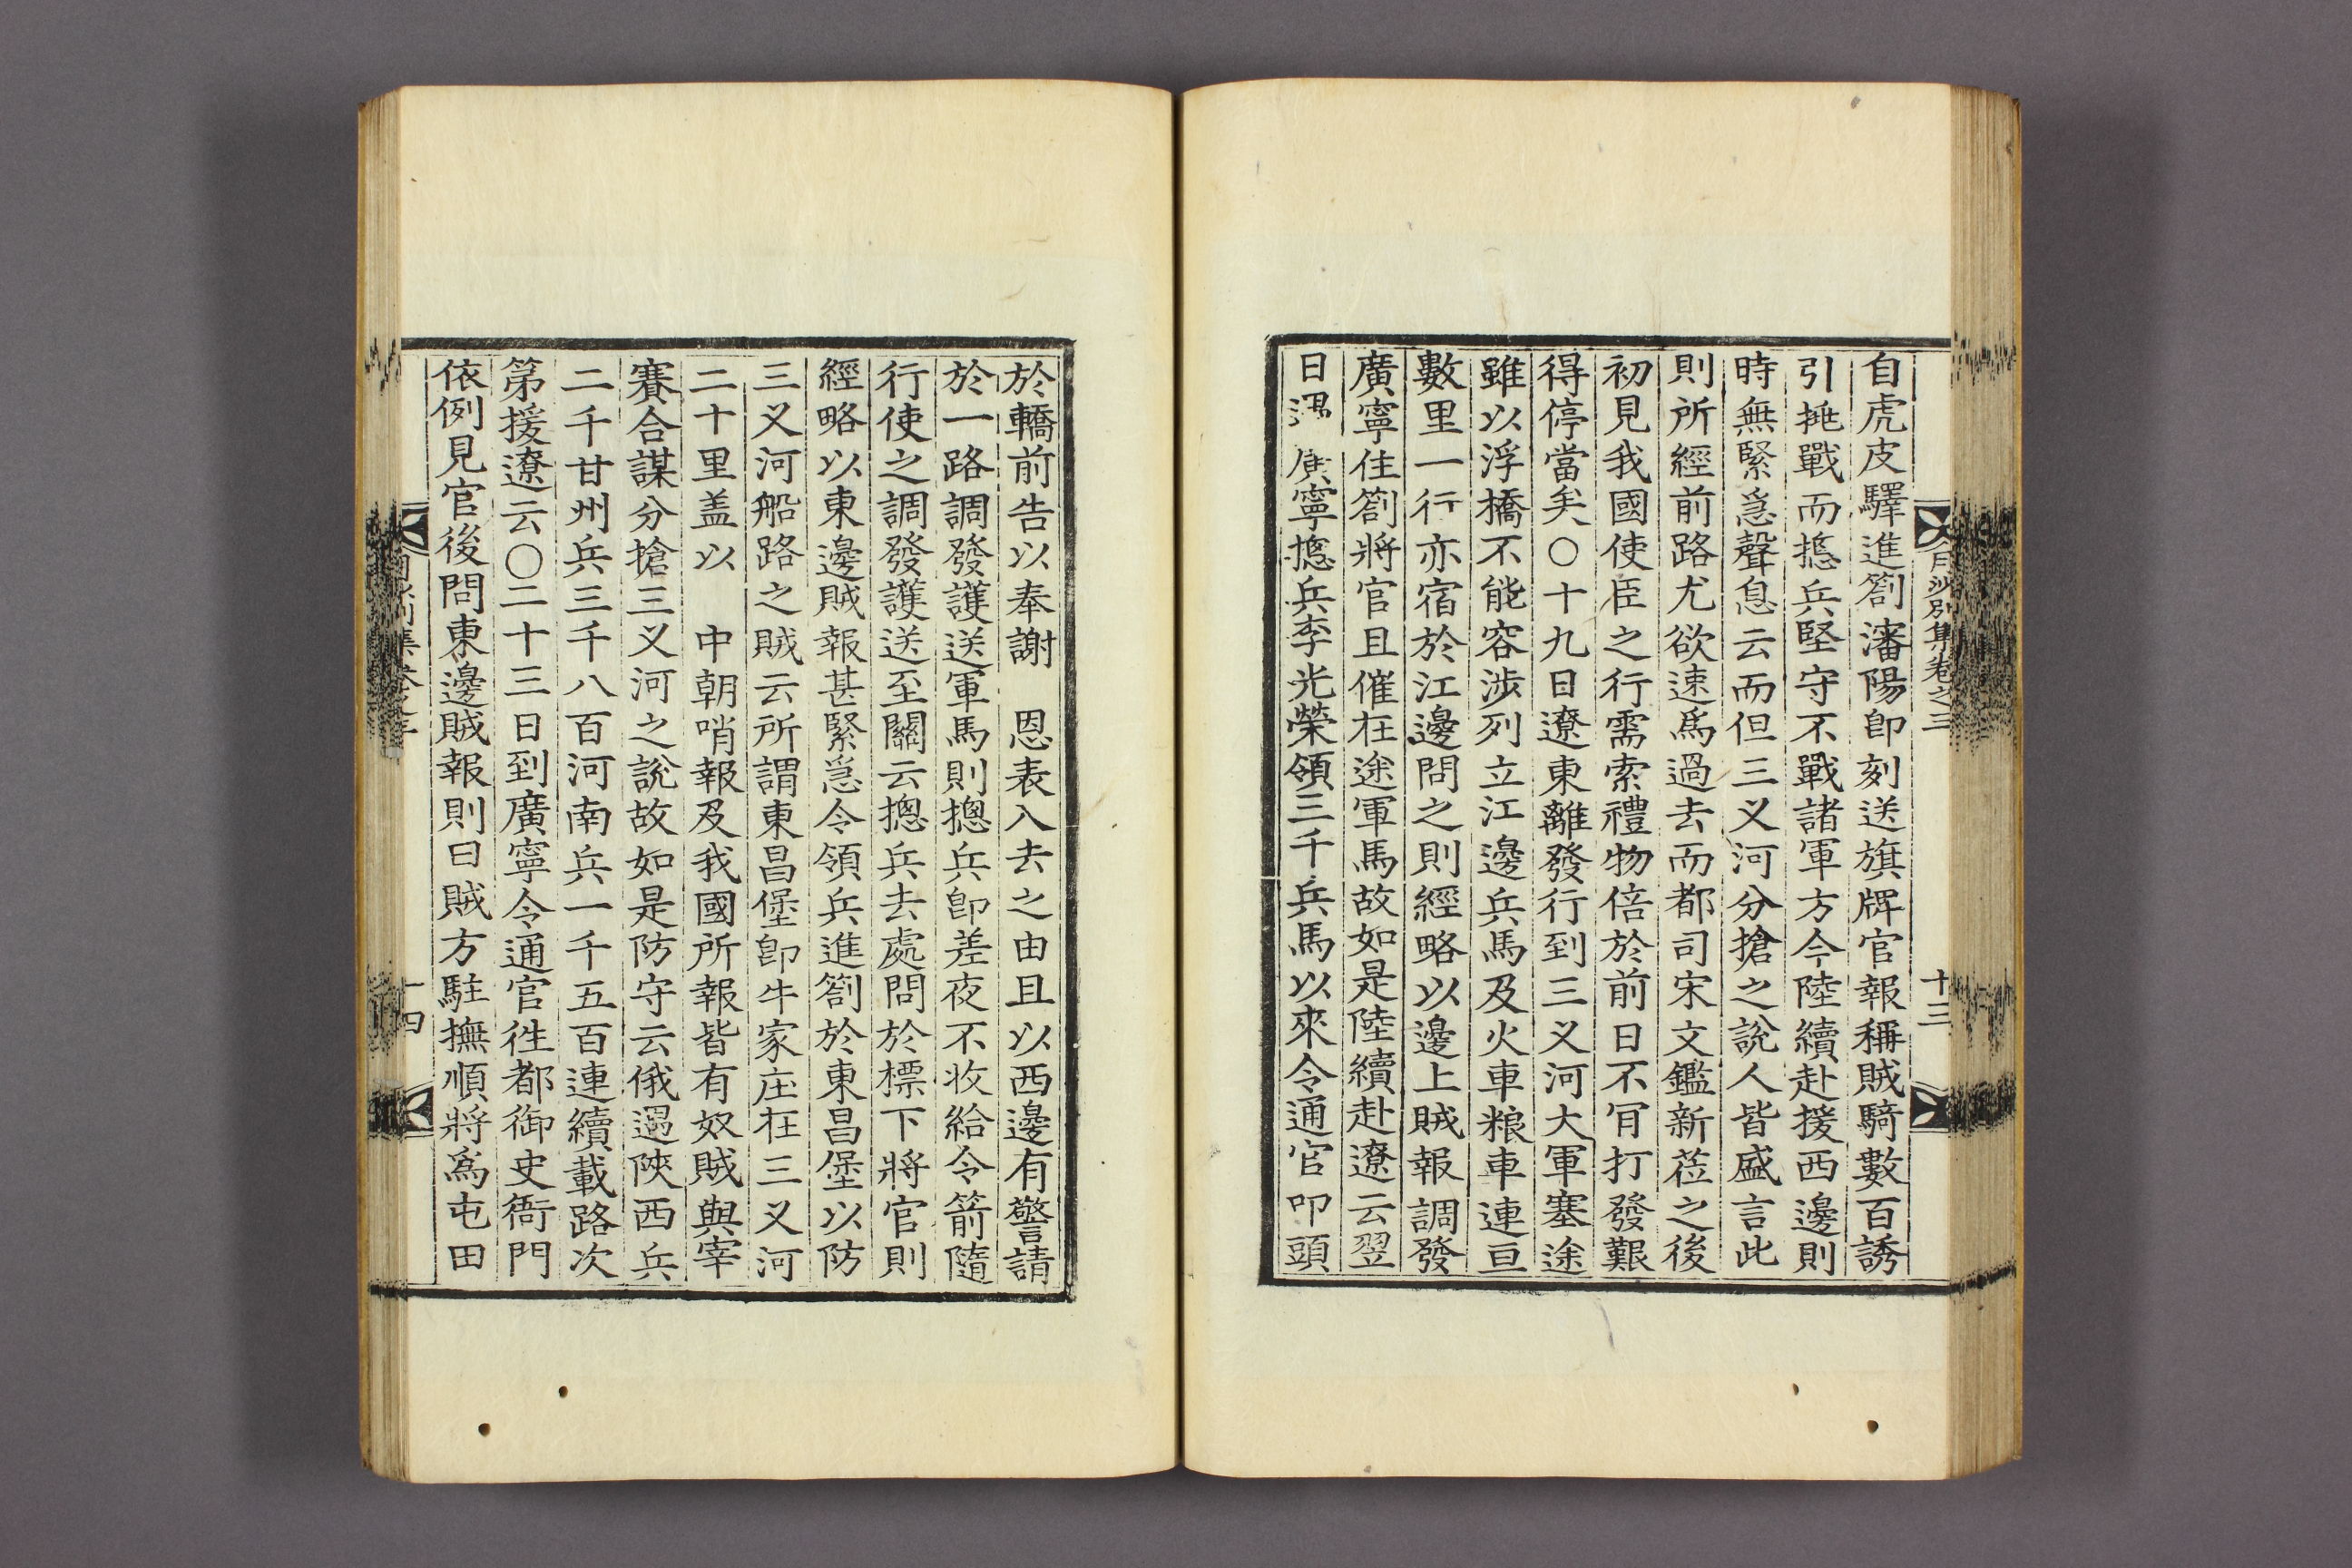 自虎皮驛進劄瀋陽卽刻送旗牌官報稱賊騎數百誘
引挑戰而摠兵堅守不戰諸軍方今陸續赴援西邊則
時無緊急聲息云而但三义河分搶之說人皆盛言此
則所經前路尤欲速爲過去而都司宋文鑑新莅之後
初見我國使臣之行需索禮物倍於前日不肎打發艱
得停當矣○十九日遼東離發行到三义河大軍塞途
雖以浮橋不能容涉列立江邊兵馬及火車粮車連亘
數里一行亦宿於江邊問之則經略以邊上賊報調發
廣寧住劄將官且催在途軍馬故如是陸續赴遼云翌
日遇廣寧摠兵李光榮領三千兵馬以來令通官叩頭
月沙別集卷之三
十三
於轎前告以奉謝　恩表入去之由且以西邊有警請
於一路調發護送軍馬則摠兵卽差夜不收給令箭隨
行使之調發護送至關云摠兵去處問於標下將官則
經略以東邊賊報甚緊急令領兵進劄於東昌堡以防
三义河船路之賊云所謂東昌堡卽牛家庄在三义河
二十里盖以　中朝哨報及我國所報皆有奴賊與宰
賽合謀分搶三义河之說故如是防守云俄遇陝西兵
二千甘州兵三千八百河南兵一千五百連續載路次
第援遼云○二十三日到廣寧令通官徃都御史衙門
依例見官後問東邊賊報則曰賊方駐撫順將爲屯田
十四